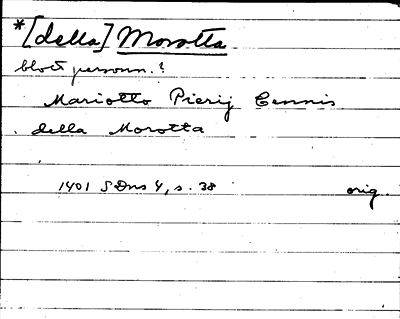 *[della] Morotta
blott personn.?
Mariotto Pierij Cennis
della Morotta
1401 SDns 4, s. 38 orig.